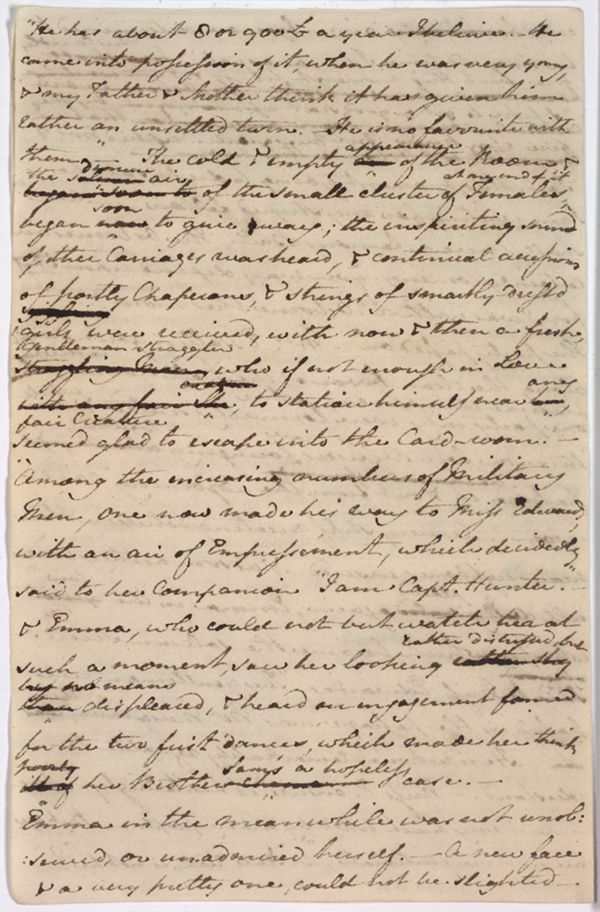 "He has about 8 or 900£ a year I beleive. - He
came into possession of it, when he was very young,
& my Father & Mother think it has given him
rather an unsettled turn. - He is no favourite with
them." The cold & empty appearance of the Room &
the demure air of the small cluster of Females at one end of it
began soon to give way; the inspiriting sound
of other Carriages was heard, & continual accessions
of portly Chaperons, & strings of smartly-dress'd
girls were received, with now & then a fresh
Gentleman straggler
straggling
who if not enough in Love
to station himself near any
fair Creature
seemed glad to escape into the Card-room. -
Among the increasing numbers of Military
Men, one now made his way to Miss Edwards,
with an air of Empressément, which decidedly
said to her Companion "I am Capt. Hunter." -
& Emma, who could not but watch her at
such a moment, saw her looking rather distressed, but
by no means
displeased, & heard an engagement formed
for the two first dances, which made her think
her Brother Sam's a hopeless case. -
Emma in the mean while was not unob:
:served, or unadmired herself. - A new face
& a very pretty one, could not be slighted -